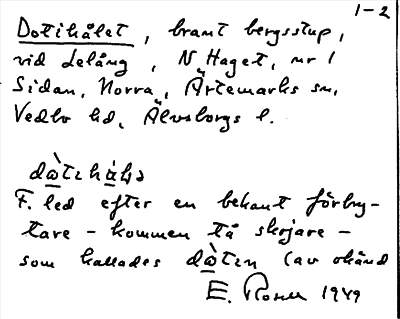 1-2
Dotihålet, brant bergsstup,
vid Lelång, N Haget, nr 1
Sidan, Norra, Ärtemarks sn,
Vedbo hd, Älvsborgs l.
dὼtɩhὰ̱lə
F. led efter en bekant förbry-
tare - kommen tå skojare -
som kallades dὼtɩn (av okänd
E. Rosell 1949